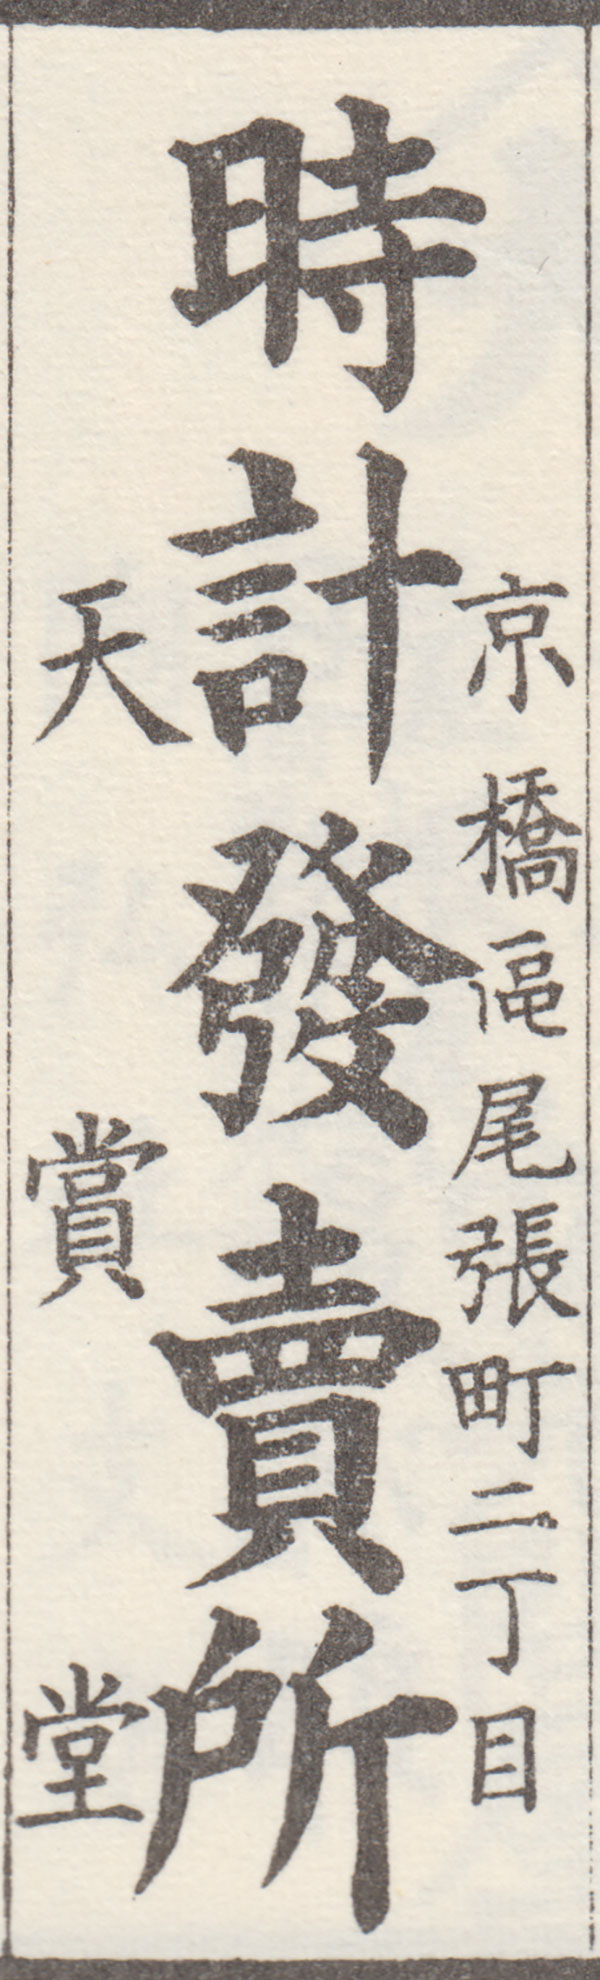 京橋區尾張町二丁目
時計發賣所
天賞堂